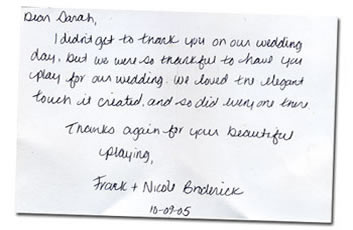 Dear Sarah,
I didn't get to thank you on our wedding
day, but we were so thankful to have you
play for our wedding. We loved the elegant
touch it created, and so did everyone there.
Thanks again for your beautiful
playing,
Frank + Nicole Broderick
10-09-05